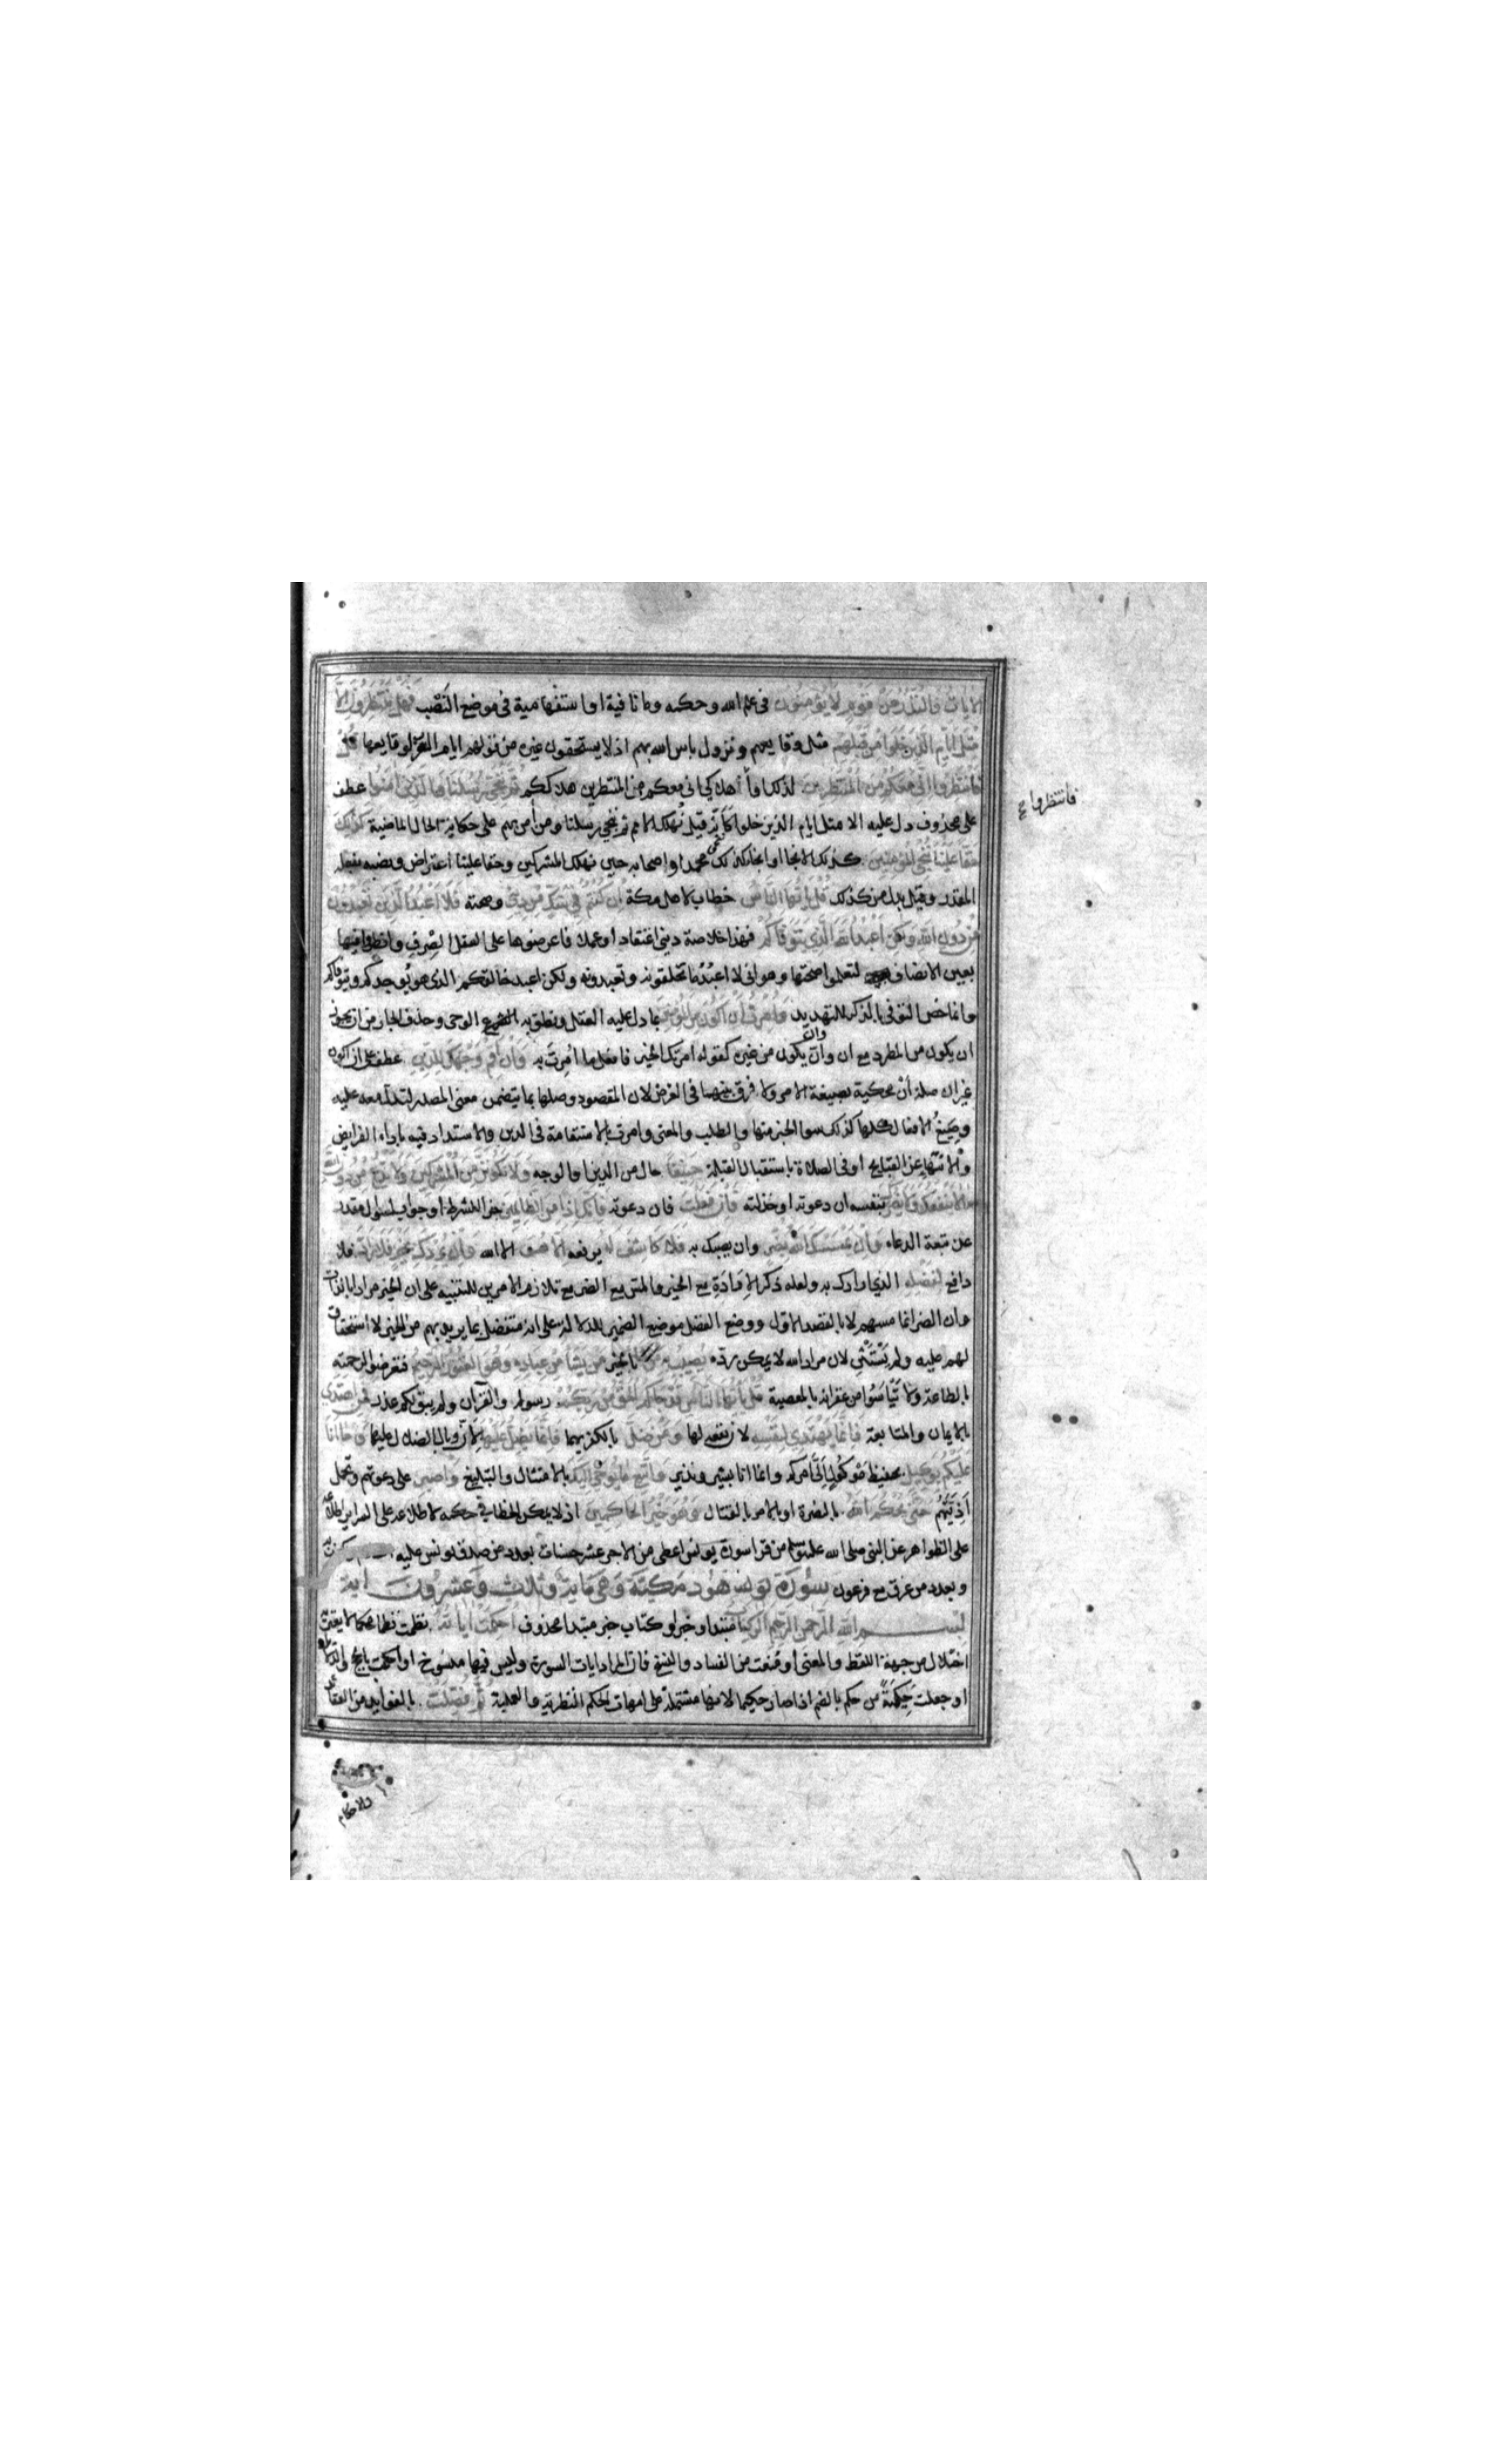 الايات والنذر عن قوم لا يؤمنون في علم الله وحكمه وما نافية او استفهامية في موضع النصب فهل ينتظرون الا
مثل ايام الذين خلوا من قبلهم مثل وقايعهم ونزول باس الله بهم اذ لا يستحقون غيره من قولهم ايام العرب لوقايعها قل
فانتظروا اني معكم من المنتظرين لذلك او فانتظروا هلاكي اني معكم من المنتظرين هلاككم ثم ننجي رسلنا والذين امنوا عطف
على محذوف دل عليه الا مثل ايام الذين خلوا كانه قيل نهلك الامم ثم ننجي رسلنا ومن امن بهم على حكاية الحال الماضية كذلك
حقا علينا ننجي المؤمنين كذلك الانجا او انجا كذلك ننجي محمدا واصحابه حين نهلك المشركين وحقا علينا اعتراض ونصبه بفعله
المقدر وقيل بدل من كذلك قل يا ايها الناس خطاب لاهل مكة ان كنتم في شك من ديني وصحته فلا اعبد الذين تعبدون
من دون الله ولكن اعبد الله الذي يتوفاكم فهذا خلاصة ديني اعتقادا وعملا فاعرضوها على العقل الصرف وانظروا فيها
بعين الانصاف لتعلموا صحتها وهو اني لا اعبد ما تخلقونه وتعبدونه ولكن اعبد خالقكم الذي هو يوجدكم ويتوفاكم
وانما خص التوفي بالذكر للتهديد وامرت ان اكون من المؤمنين بما دل عليه العقل ونطق به الوحي وحذف الجار من ان يجوز
ان يكون من المطرد مع ان وان وان يكون من غيره كقوله امرتك الخير فافعل ما امرت به وان اقم وجهك للدين عطف على ان اكون
غير ان صلة ان محكية بصيغة الامر ولا فرق بينهما في الغرض لان المقصود وصلها بما يتضمن معنى المصدر لتدل معه عليه
وصيغ الافعال كلها كذلك سوا الخبر منها والطلب والمعنى وامرت بالاستقامة في الدين والاستداد فيه باداء الفرايض
والانتهاء عن القبايح او في الصلاة باستقبال القبلة حنيفا حال من الدين او الوجه ولا تكونن من المشركين ولا تدع من دون الله
ما لا ينفعك ولا يضرك بنفسه ان دعوته او خذلته فان فعلت فان دعوته فانك اذا من الظالمين جزا للشرط وجواب لسوال مقدر
عن تبعة الدعاء وان يمسسك الله بضر وان يصبك به فلا كاشف له يرفعه الا هو الا الله وان يردك بخير فلا راد فلا
دافع لفضله الذي ارادك به ولعله ذكر الارادة مع الخير والمس مع الضر مع تلازم الامرين للتنبيه على ان الخير مراد بالذات
وان الضر انما مسهم لا بالقصد الاول ووضع الفضل موضع الضمير للدلالة على انه متفضل بما يريد بهم من الخير لا استحقاق
لهم عليه ولم يستثن لان مراد الله لا يمكن رده يصيب به بالخير من يشا من عباده وهو الغفور الرحيم فتعرضوا لرحمته
بالطاعة ولا تيأسوا من غفرانه بالمعصية قل يا ايها الناس قد جاكم الحق من ربكم رسوله والقرآن ولم يبق لكم عذر فمن اهتدى
بالايمان والمتابعة فانما يهتدي لنفسه لان نفعه لها ومن ضل بالكفر بهما فانما يضل عليها لان وبال الضلال عليها وما انا
عليكم بوكيل بحفيظ موكول الي امركم وانما انا بشير ونذير واتبع ما يوحى اليك بالامتثال والتبليغ واصبر على دعوتهم وتحمل
اذيتهم حتى يحكم الله بالنصرة او بالامر بالقتال وهو خير الحاكمين اذ لا يمكن الخطا في حكمه لاطلاعه على السراير اطلاعه
على الظواهر عن النبي صلى الله عليه وسلم من قرا سورة يونس اعطي من الاجر عشر حسنات بعدد من صدق بيونس عليه وكذب به
وبعدد من غرق مع فرعون سورة هود مكية وهي ماية وثلاث وعشرون اية
بسم الله الرحمن الرحيم الر كتاب مبتدا وخبر او كتاب خبر مبتدا محذوف احكمت اياته نظمت نظما محكما لا يعتريه
اختلال من جهة اللفظ والمعنى او منعت من الفساد والنسخ فان المراد ايات السورة وليس فيها منسوخ او احكمت بالحجج والدلايل
او جعلت حكيمة من حكم بالضم اذا صار حكيما لانها مشتملة على امهات الحكم النظرية والعملية ثم فصلت بالفوايد من العقايد
فانتظروا صح
والاحكام